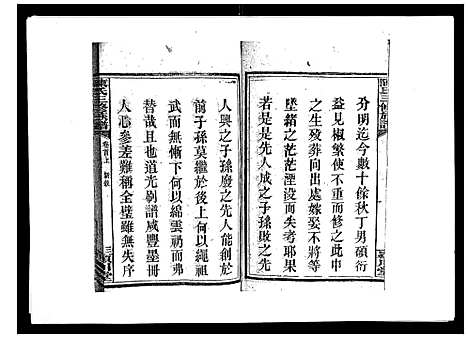 分明迄今數十餘秋丁男碩衍
益見椒繁使不重而修之此中
之生歿葬向出處嫁娶不將等
墜緒之茫茫湮沒而失考耶果
若是是先人成之子孫敗之先
人興之子孫廢之先人能創於
前子孫莫繼於後上何以繩祖
武而無慚下何以綿雲礽而弗
替哉且也道光刷譜咸豐墨冊
人心參差難稱全璧雖無失序
卷首上
三
潁川堂